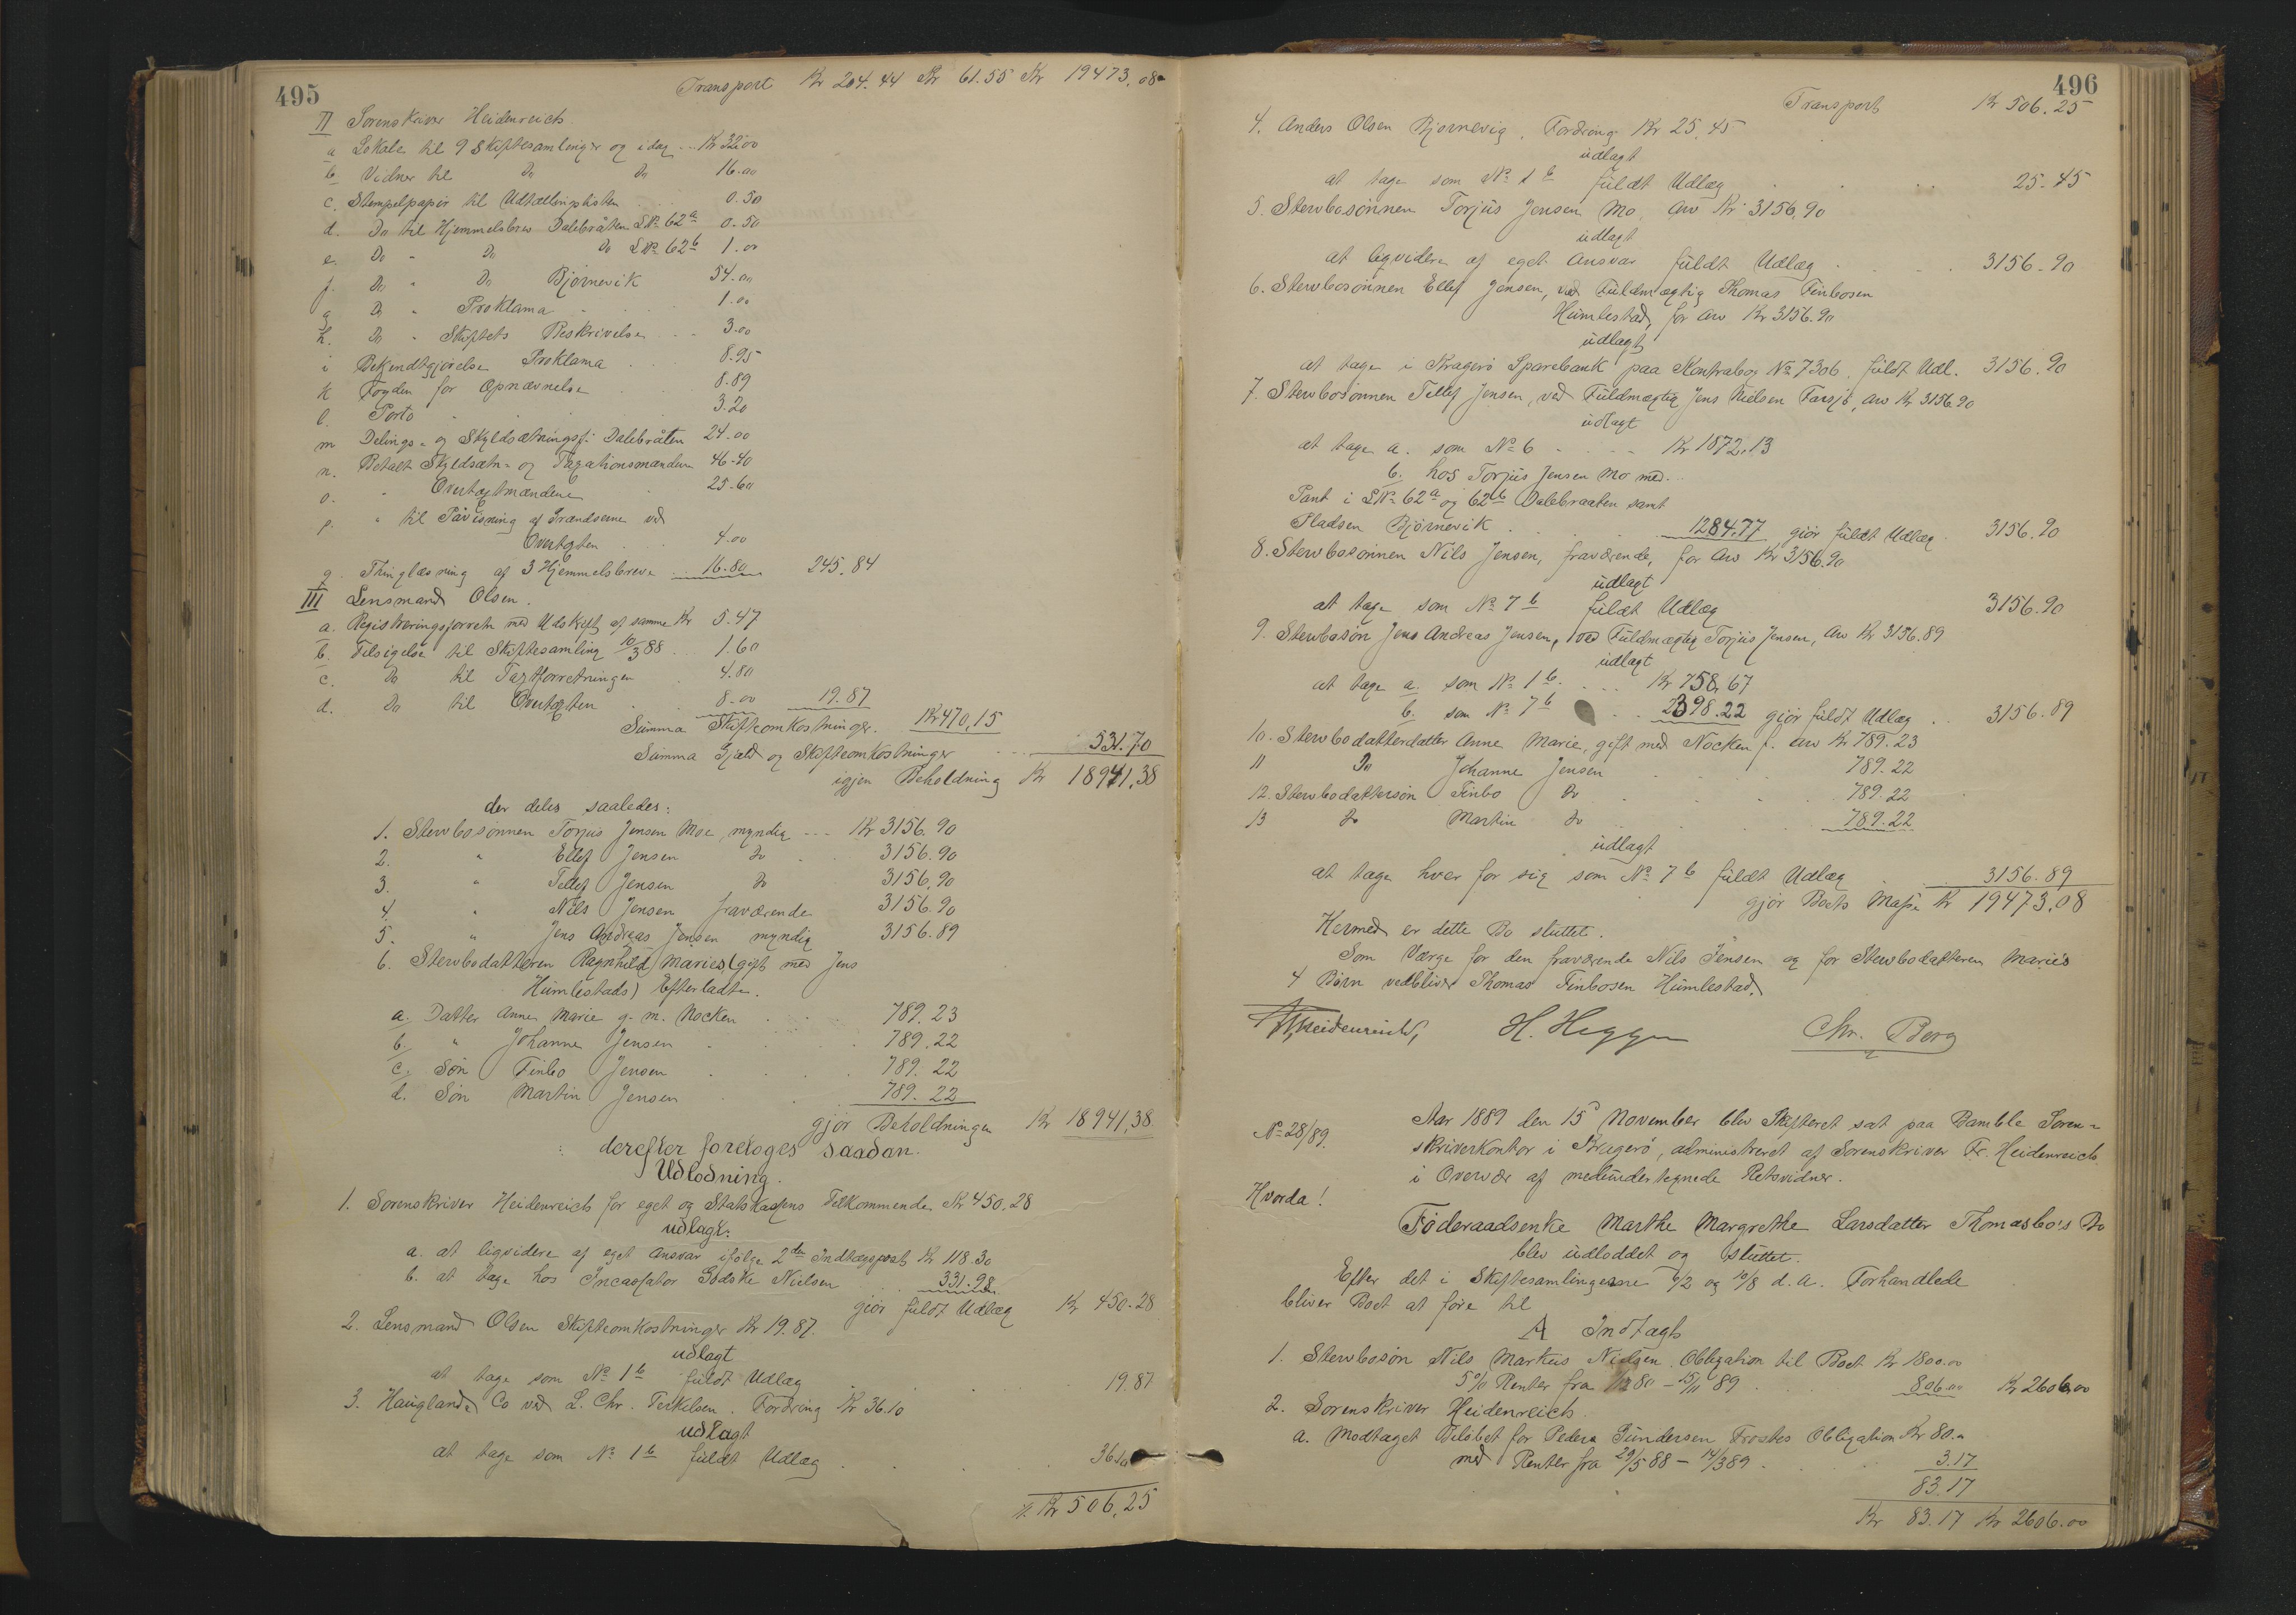 495
Transport Kr 204.44 Kr 61.55 Kr 19473,08
II Sorenskriver Heidenreich.
a Lokale til 9 Skiftesamlinger og idag .. Kr 32.00
b. Vidner til Do Do 16.00
c. Stempelpapir til Udtællingslisten 0.50
d. Do til Hjemmelsbrev Dalebråten LNo 62a 0.50
e. Do " Do Do LNo 62b 1.00
f. Do " Do Bjørnevik 54.00
g Do " Proklama 1.00
h. Do " Skiftets Beskrivelse 3.00
i Bekjendtgjørelse Proklama 8.95
k Fogden for Opnævnelse 8.89
l. Porto 3.20
m Delings- og Skyldsætningsf: Dalebråten 24.00
n. Betalt Skyldsætn- og Taxationsmændene 46.40
o. " Overtaxtmændene 25.60
p. " til Påvisning af Grændserne ved
Overtaxten 4.00
q. Thinglæsning af 3 Hjemmelsbreve 16.80 245.84
III Lensmand Olsen.
a. Registreringsforretn med Udskrift af samme Kr 5.47
b. Tilsigelse til Skiftesamling 10/3 88 .. 1.60
c. Do til Taxtforretningen 4.80
d. Do til Overtaxten 8.00 19.87
Summa Skifteomkostninger. Kr 470,15
Summa Gjæld og Skifteomkostninger 531.70
igjen Beholdning Kr 18941,38
der deles saaledes:
1. Stervbosønnen Torjus Jensen Moe, myndig --- Kr 3156.90
2. " Ellef Jensen do 3156.90
3. " Tellef Jensen do 3156,90
4. " Nils Jensen fraværende 3156.90
5. " Jens Andreas Jensen myndig 3156.89
6. Stervbodatteren Ragnhild Maries (gift med Jens
Humlestads) Efterladte.
a. Datter Anne Marie g. m. Nocken 789.23
b. " Johanne Jensen 789.22
c. Søn Finbo Jensen 789.22
d. Søn Martin Jensen 789.22
gjør Beholdningen Kr 18941,38
derefter foretoges saadan.
Udlodning.
1. Sorenskriver Heidenreich for eget og Statskassens Tilkommende Kr 450.28
udlagt:
a. at liqvidere af eget Ansvar ifølge 2den Indtægtspost Kr 118.30
b. at tage hos Incassator Godske Nielsen .. 331.98
giør fuldt Udlæg Kr 450.28
2. Lensmand Olsen Skifteomkostninger Kr 19.87.
udlagt
at tage som No 1b fuldt Udlæg 19.87
3. Haugland & Co ved L. Chr. Terkelsen. Fordring Kr 36.10
udlagt
at tage som No 1b fuldt Udlæg 36.10
Kr 506,25
496
Transport Kr 506.25
4. Anders Olsen Bjørnevig, Fordring Kr 25.45
udlagt
at tage som No 1b fuldt Udlæg 25.45
5. Stervbosønnen Torjus Jensen Mo, Arv Kr 3156,90
udlagt
at liqvidere af eget Ansvar fuldt Udlæg 3156.90
6. Stervbosønnen Ellef Jensen, ved Fuldmægtig Thomas Finbosen
Humlestad, for Arv Kr 3156.90
udlagt
at tage i Kragerø Sparebank paa Kontrabog No 7306. fuldt Udl. 3156.90
7. Stervbosønnen Tellef Jensen, ved Fuldmægtig Jens Nielsen Farsjø, Arv Kr 3156.90
udlagt
at tage a. som No 6 Kr 1872.13
b. hos Torjus Jensen Mo med..
Pant i LNo 62a og 62b Dalebraaten samt
Pladsen Bjørnevik 1284.77 giør fuldt Udlæg 3156.90
8. Stervbosønnen Nils Jensen, fraværende, for Arv Kr 3156.90
udlagt
at tage som No 7b fuldt Udlæg 3156.90
9. Stervbosøn Jens Andreas Jensen, ved Fuldmægtig Torjus Jensen, Arv Kr 3156.89
udlagt
at tage a. som No 1b. Kr 758,67
b. som No 7b .. 2398.22 giør fuldt Udlæg .. 3156.89
10. Stervbodatterdatter Anne Marie, gift med Nocken f. Arv Kr 789.23
11 Do Johanne Jensen 789.22
12. Stervbodattersøn Finbo do 789.22
13 do Martin do 789.22
udlagt
at tage hver for sig som No 7b fuldt Udlæg 3156.89
gjør Boets Masse Kr 19473,08
Hermed er dette Bo sluttet.
Som Værge for den fraværende Nils Jensen og for Stervbodatteren Marie's
4 Børn vedbliver Thomas Finbosen Humlestad.
Heidenreich, H. Heggen Chr. Berg
No 28/89.
Aar 1889 den 15d November blev Skifteret sat paa Bamble Soren-
skriverkontor i Kragerø, administreret af Sorenskriver Fr. Heidenreich
i Overvær af medundertegnede Retsvidner.
Hvorda!
Føderaadsenke Marthe Margrethe Larsdatter Thomasbo's Bo
blev udloddet og sluttet.
Efter det i Skiftesamlingerne /2 og 10/8 d. A. Forhandlede
bliver Boet at føre til
A Indtægt
1. Stervbosøn Nils Markus Nielsen. Obligation til Boet Kr 1800.00
5% Renter fra 80 - 15/11 89 806.00 Kr 2606,00
2. Sorenskriver Heidenreich.
a. Modtaget Beløbet for Peder Gundersen Frostes Obligation Kr 80.00
med Renter fra 29/5 88 - 14/3 89 3.17
83.17
Kr 83.17 Kr 2606.00